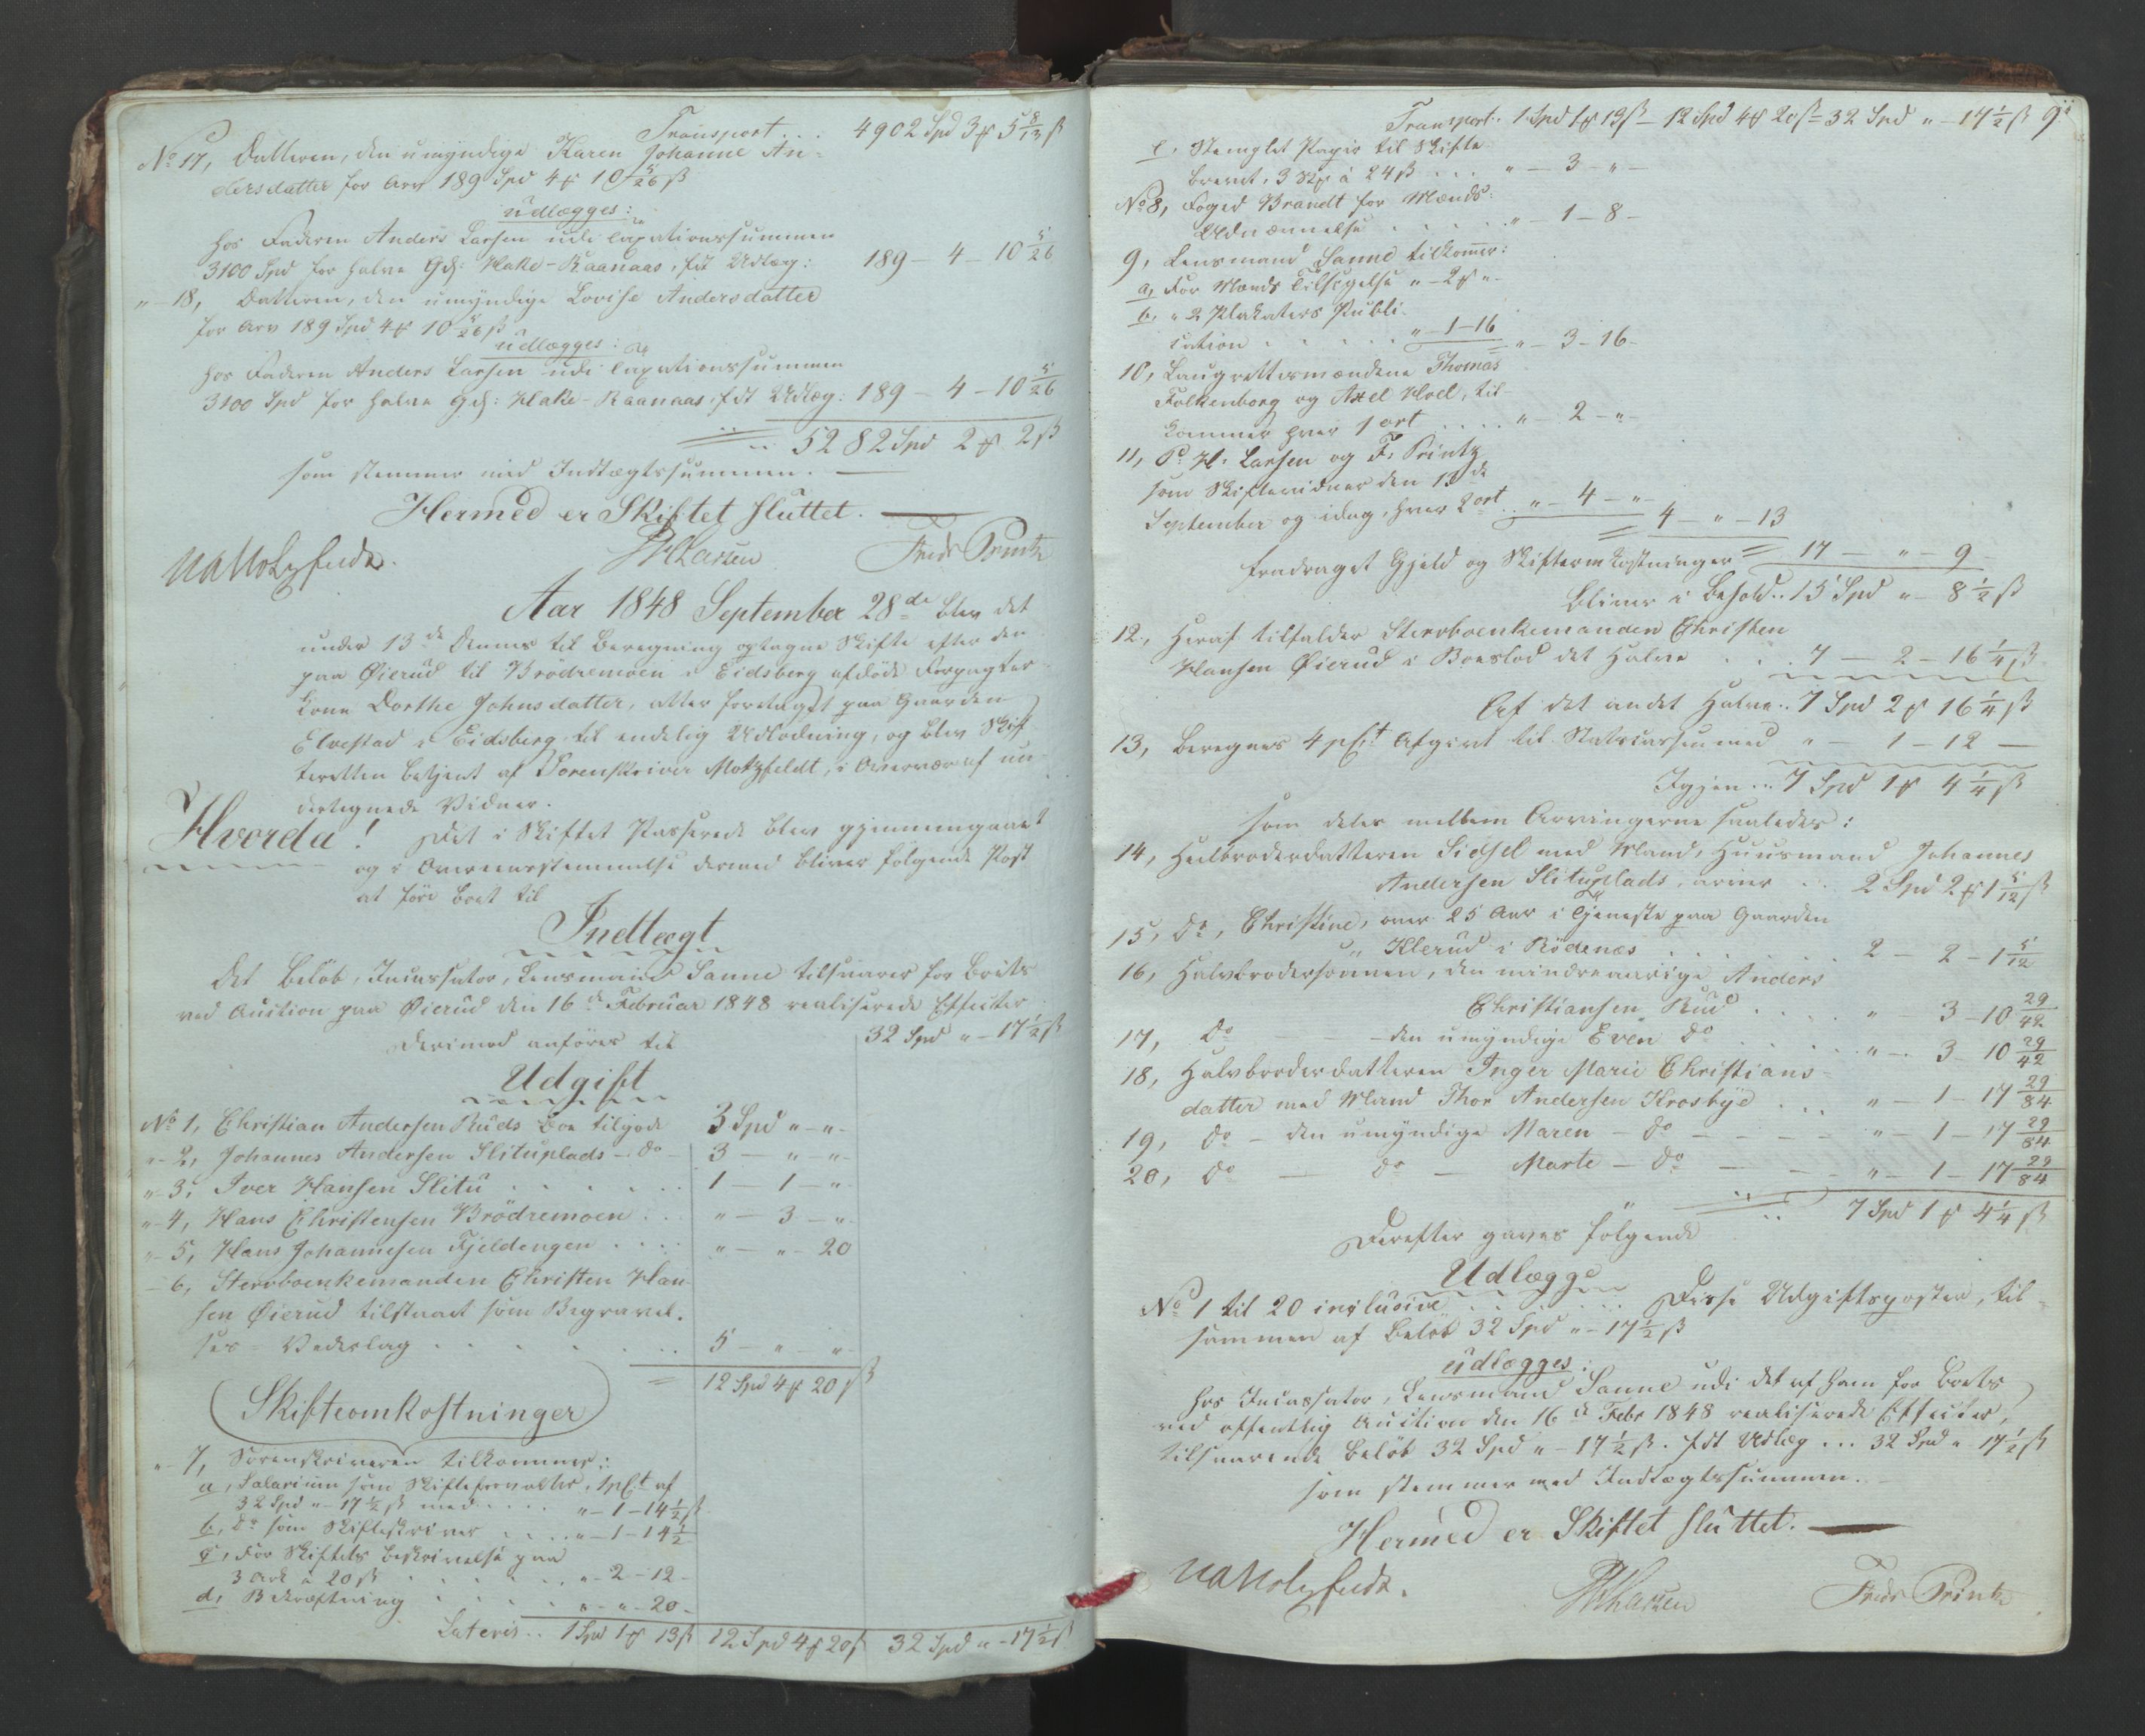 Transport . . . 4902 Spd 3 ꝑ 5 8/13 ß
No 17, Datteren, den umyndige Karen Johanne An-
dersdatter for Arv 189 Spd 4 ꝑ 10 5/26 ß
udlægges:
hos Faderen Anders Larsen udi Taxationssummen
3100 Spd for halve Gd: Hake-Raanaas, fdt Udlæg: 189 - 4 - 10 5/26
" 18, Datteren, den umyndige Lovise Andersdatter
for Arv 189 Spd 4 ꝑ 10 5/26 ß
udlægges:
hos Faderen Anders Larsen udi Taxationssummen
3100 Spd for halve Gd: Hake-Raanaas, fdt Udlæg: 189 - 4 - 10 5/26
5282 Spd 2 ꝑ 2 ß
som stemmer med Indtægtssummen.
Hermed er Skiftet sluttet.
Motzfeldt. PHLarsen Fredr Printz
Aar 1848 September 28de blev det
under 13de Dennes til Beregning optagne Skifte efter den
paa Øierud til Brödremoen i Eidsberg afdöde Forpagter-
kone Dorthe Johnsdatter, atter foretaget paa Gaarden
Elvestad i Eidsberg til endelig Udlodning, og blev Skif-
teretten betjent af Sorenskriver Motzfeldt, i Overvær af un-
dertegnede Vidner.
Hvorda! Det i Skiftet Passerede blev gjennemgaaet
og i Overeensstemmelse dermed bliver følgende Post
at före Boet til
Indtægt
Det Beløb, Incassator, Lensmand Sanne tilsvarer for Boets
ved Auction paa Øierud den 16de Februar 1848 realiserede Effecter
32 Spd " - 17 1/2 ß
Derimod anföres til
Udgift
No 1, Christian Andersen Ruds Boe tilgode 3 Spd " - "
" 2, Johannes Andersen Slituplads - do - 3 - " - "
" 3, Iver Hansen Slitu . . . . . 1 - 1 - "
" 4, Hans Christensen Brödremoen . . " - 3 - "
" 5, Hans Johannesen Fjeldengen . . . . " - " - 20
- 6, Stervboenkemanden Christen Han-
sen Øierud tilstaaet som Begravel-
ses - Vederlag . . . . . . 5 - " - "
12 Spd 4 ꝑ 20 ß
Skifteomkostninger
" 7, Sorenskriveren tilkommer:
a, Salarium som Skifteforvalter, 1 pCt af
32 Spd " - 17 1/2 ß med . . . . " - 1 - 14 1/2 ß
b, do som Skifteskriver . . . . " - 1 - 14 1/2
c, For Skiftets Beskrivelse paa
3 Ark à 20 ß . . . . . . " - 2 - 12 -
d, Bekræftning . . . . . " - " - 20 -
Lateris . . 1 Spd 1 ꝑ 13 ß 12 Spd 4 ꝑ 20 ß 32 Spd " - 17 1/2 ß
Transport . . 1 Spd 1 ꝑ 13 ß - 12 Spd 4 ꝑ 20 ß - 32 Spd " - 17 1/2 ß 9
e, Stemplet Papir til Skifte-
brevet, 3 Stk à 24 ß . . . " - 3 - " -
No 8, Foged Brandt for Mænds-
Udnævnelse . . . . . " - 1 - 8 -
9, Lensmand Sanne tilkommer:
a, For Mænds Tilsigelse " - 2 ꝑ " -
b, " 2 Plakaters Publi-
cation . . . . . " - 1 - 16 " - 3 - 16 -
10, Laugrettesmændene Thomas
Folkenborg og Axel Hoel, til-
kommer hver 1 ort . . . . " - 2 - " -
11, P. H. Larsen og F. Printz
som Skiftevidner den 13de
September og idag, hver 2 ort . . " - 4 - " - 4 - " - 13
fradraget Gjeld og Skifteomkostninger 17 - " - 9
Bliver i Behold . . 15 Spd " - 8 1/2 ß
12, Heraf tilfalder Stervboenkemanden Christen
Hansen Øierud i Boeslod det Halve . . . . 7 - 2 - 16 1/4 ß
Af det andet Halve . . 7 Spd 2 ꝑ 16 1/4 ß
13, Beregnes 4 pCt Afgivt til Statscassen med " - 1 - 12 -
Igjen . . 7 Spd 1 ꝑ 4 1/4 ß
som deles mellem Arvingerne saaledes:
14, Heelbroderdatteren Sidsel med Mand, Huusmand Johannes
Andersen Slituplads, arver . . 2 Spd 2 ꝑ 1 5/12 ß
15, do, Christine, over 25 Aar i Tjeneste paa Gaarden
Klerud i Rödenæs . . . . . . 2 - 2 - 1 5/12
16, Halvbrodersönnen, den mindreaarige Anders
Christiansen Rud . . . . " - 3 - 10 29/42
17, do - - - den umyndige Even do . . . . . " - 3 - 10 29/42
18, Halvbroderdatteren Inger Marie Christians-
datter med Mand Thor Andersen Krosbye . . . . " - 1 - 17 29/84
19, do - den umyndige Maren - do - - - - - " - 1 - 17 29/84
20, do - do - Marte - do - - - " - 1 - 17 29/84
7 Spd 1 ꝑ 4 1/4 ß
Derefter gaves fölgende
Udlægge
No 1 til 20 inclusive . . . . . . Disse Udgiftsposter, til-
sammen af Beløb 32 Spd " - 17 1/2 ß
udlægges:
hos Incassator, Lensmand Sanne udi det af ham for Boets
ved offentlig Auction den 16de Febr 1848 realiserede Effecter,
tilsvarende Beløb 32 Spd " - 17 1/2 ß. fdt Udlæg . . . 32 Spd " 17 1/2 ß
som stemmer med Indtægtssummen.
Hermed er Skiftet sluttet.
Motzfeldt. PHLarsen Fredr Printz